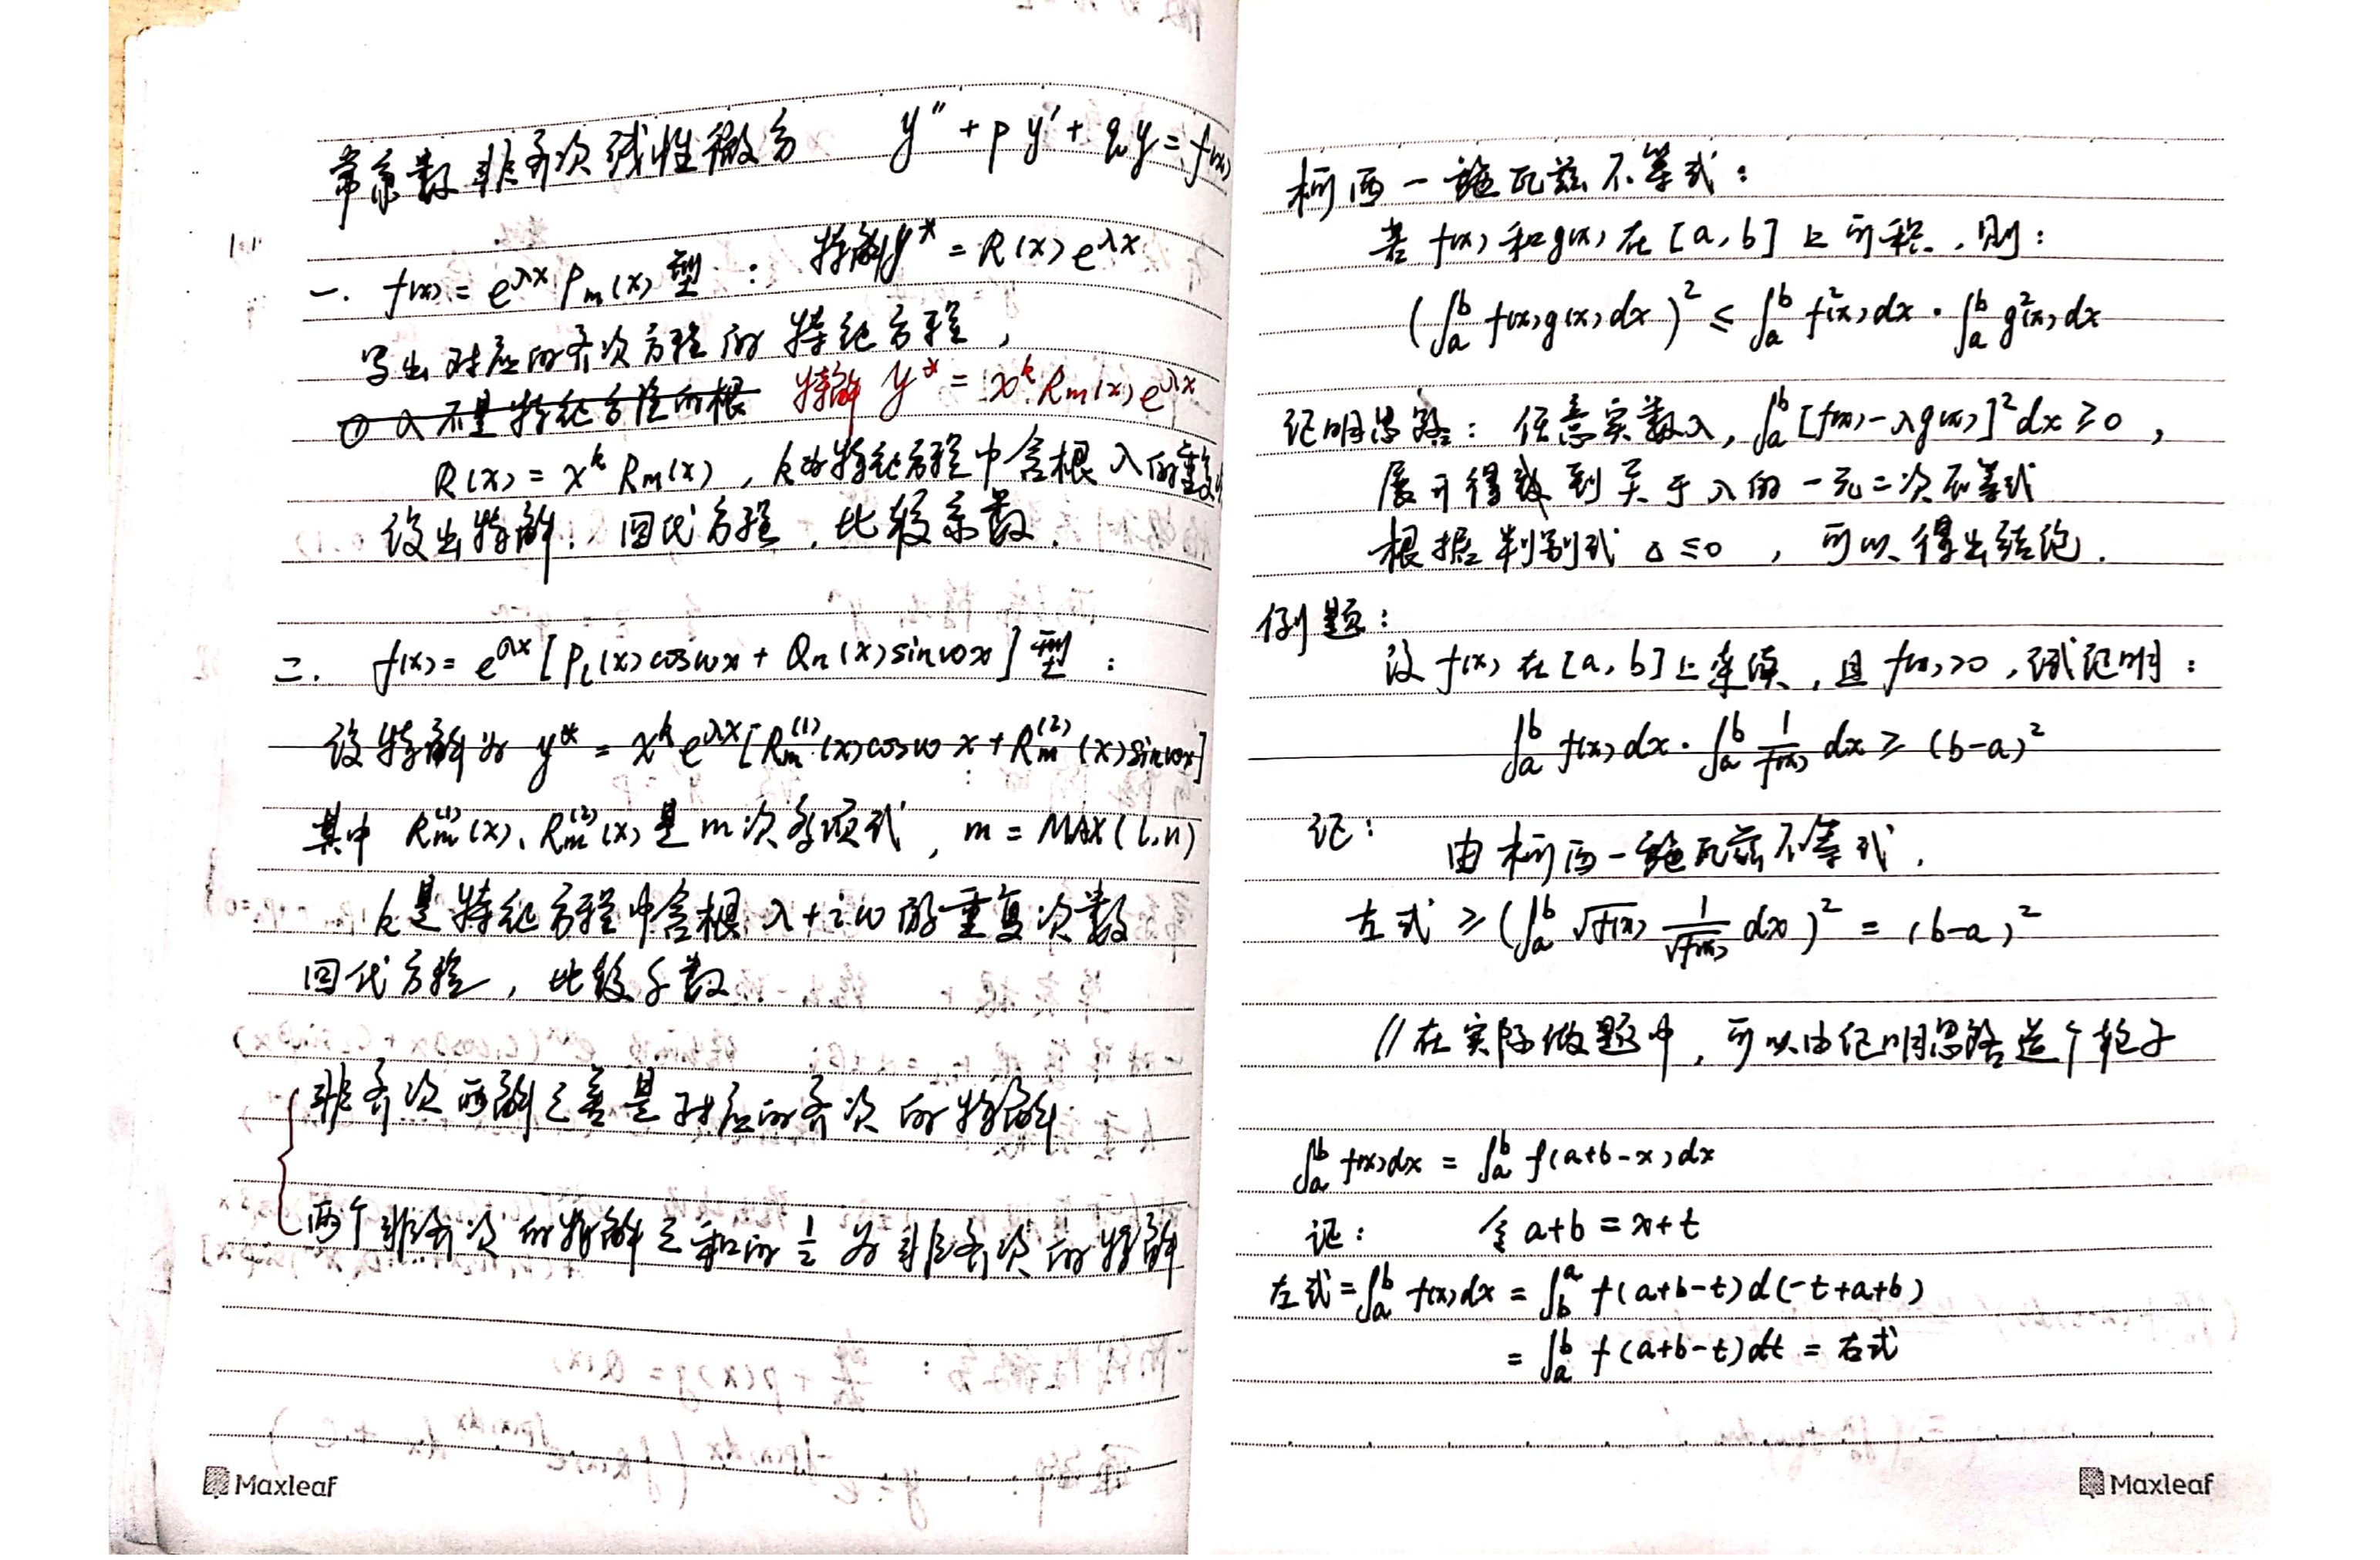 常系数非齐次线性微分 y″ + p y′ + q y = f(x)
一. f(x) = e^{λx} P_m(x) 型 : 特解 y* = R(x) e^{λx}
写出对应的齐次方程的特征方程,
① λ 不是特征方程的根 特解 y* = x^k R_m(x) e^{λx}
R(x) = x^k R_m(x) , k为特征方程中含根 λ 的重数
设出特解. 回代方程 , 比较系数 .
二. f(x) = e^{λx} [P_l(x) cosωx + Q_n(x) sinωx] 型 :
设特解为 y* = x^k e^{λx} [R_m^{(1)}(x) cosωx + R_m^{(2)}(x) sinωx]
其中 R_m^{(1)}(x)、R_m^{(2)}(x) 是 m 次多项式 , m = MAX(l,n)
k是特征方程中含根 λ+iω 的重复次数
回代方程 , 比较系数 .
非齐次两解之差是对应的齐次的特解
两个非齐次的特解之和的 1/2 为非齐次的特解
Maxleaf
柯西-施瓦兹不等式 :
若 f(x) 和 g(x) 在 [a, b] 上可积 , 则 :
(∫_a^b f(x)g(x)dx)² ≤ ∫_a^b f²(x)dx · ∫_a^b g²(x)dx
证明思路 : 任意实数λ, ∫_a^b [f(x)-λg(x)]² dx ≥ 0 ,
展开得到关于 λ 的一元二次不等式
根据判别式 Δ ≤ 0 , 可以得出结论 .
例题 :
设 f(x) 在 [a, b] 上连续 , 且 f(x)>0 , 试证明 :
∫_a^b f(x)dx · ∫_a^b 1/f(x) dx ≥ (b-a)²
证 :
由柯西-施瓦兹不等式 .
左式 ≥ (∫_a^b √f(x) 1/√f(x) dx)² = (b-a)²
// 在实际做题中 , 可以由证明思路造个轮子
∫_a^b f(x)dx = ∫_a^b f(a+b-x)dx
证 : 令 a+b = x+t
左式 = ∫_a^b f(x)dx = ∫_b^a f(a+b-t) d(-t+a+b)
= ∫_a^b f(a+b-t)dt = 右式
Maxleaf